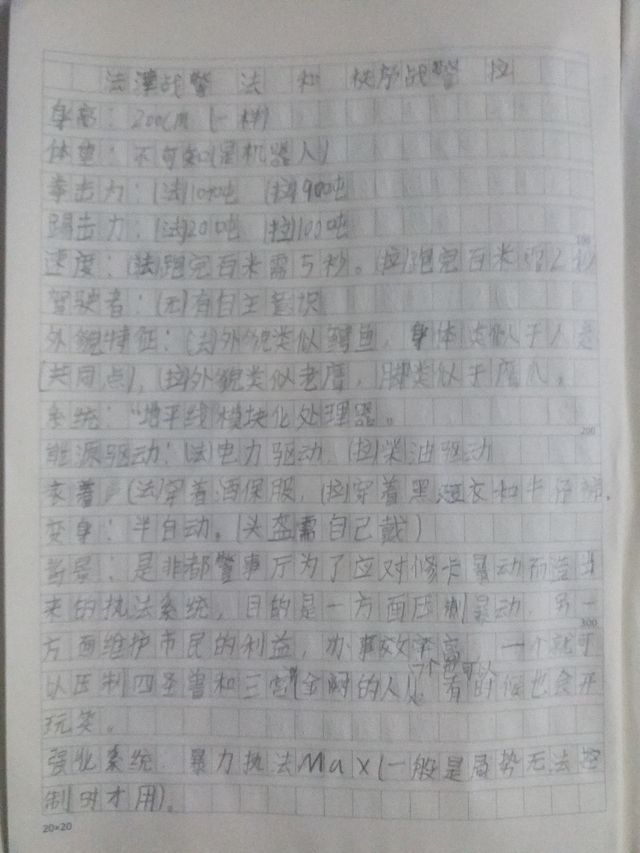 法律战警 法 和 秩序战警 拉
身高：200cm（一样）
体重：不可知（是机器人）
拳击力：（法）100吨 （拉）900吨
踢击力：（法）200吨 （拉）100吨
速度：（法）跑完百米需5秒。（拉）跑完百米需2秒
驾驶者：（无）有自主意识
外貌特征：（法）外貌类似鳄鱼，身体类似于人是
（共同点），（拉）外貌类似老鹰，脚类似于鹰爪。
系统：“地平线”模块化处理器。
能源驱动：（法）电力驱动，（拉）柴油驱动
衣着：（法）穿着酒保服，（拉）穿着黑短衣和牛仔裤.
变身：半自动。（头盔需自己戴）
背景：是非都警事厅为了应对修卡暴动而造出
来的执法系统，目的是一方面压制暴动，另一
方面维护市民的利益，办事效率高，一个就可
以压制四圣兽和三 的人），有的候也会开
玩笑。
强化系统 暴力执法Max（一般是局势无法控
制时才用）。
100
200
300
20×20